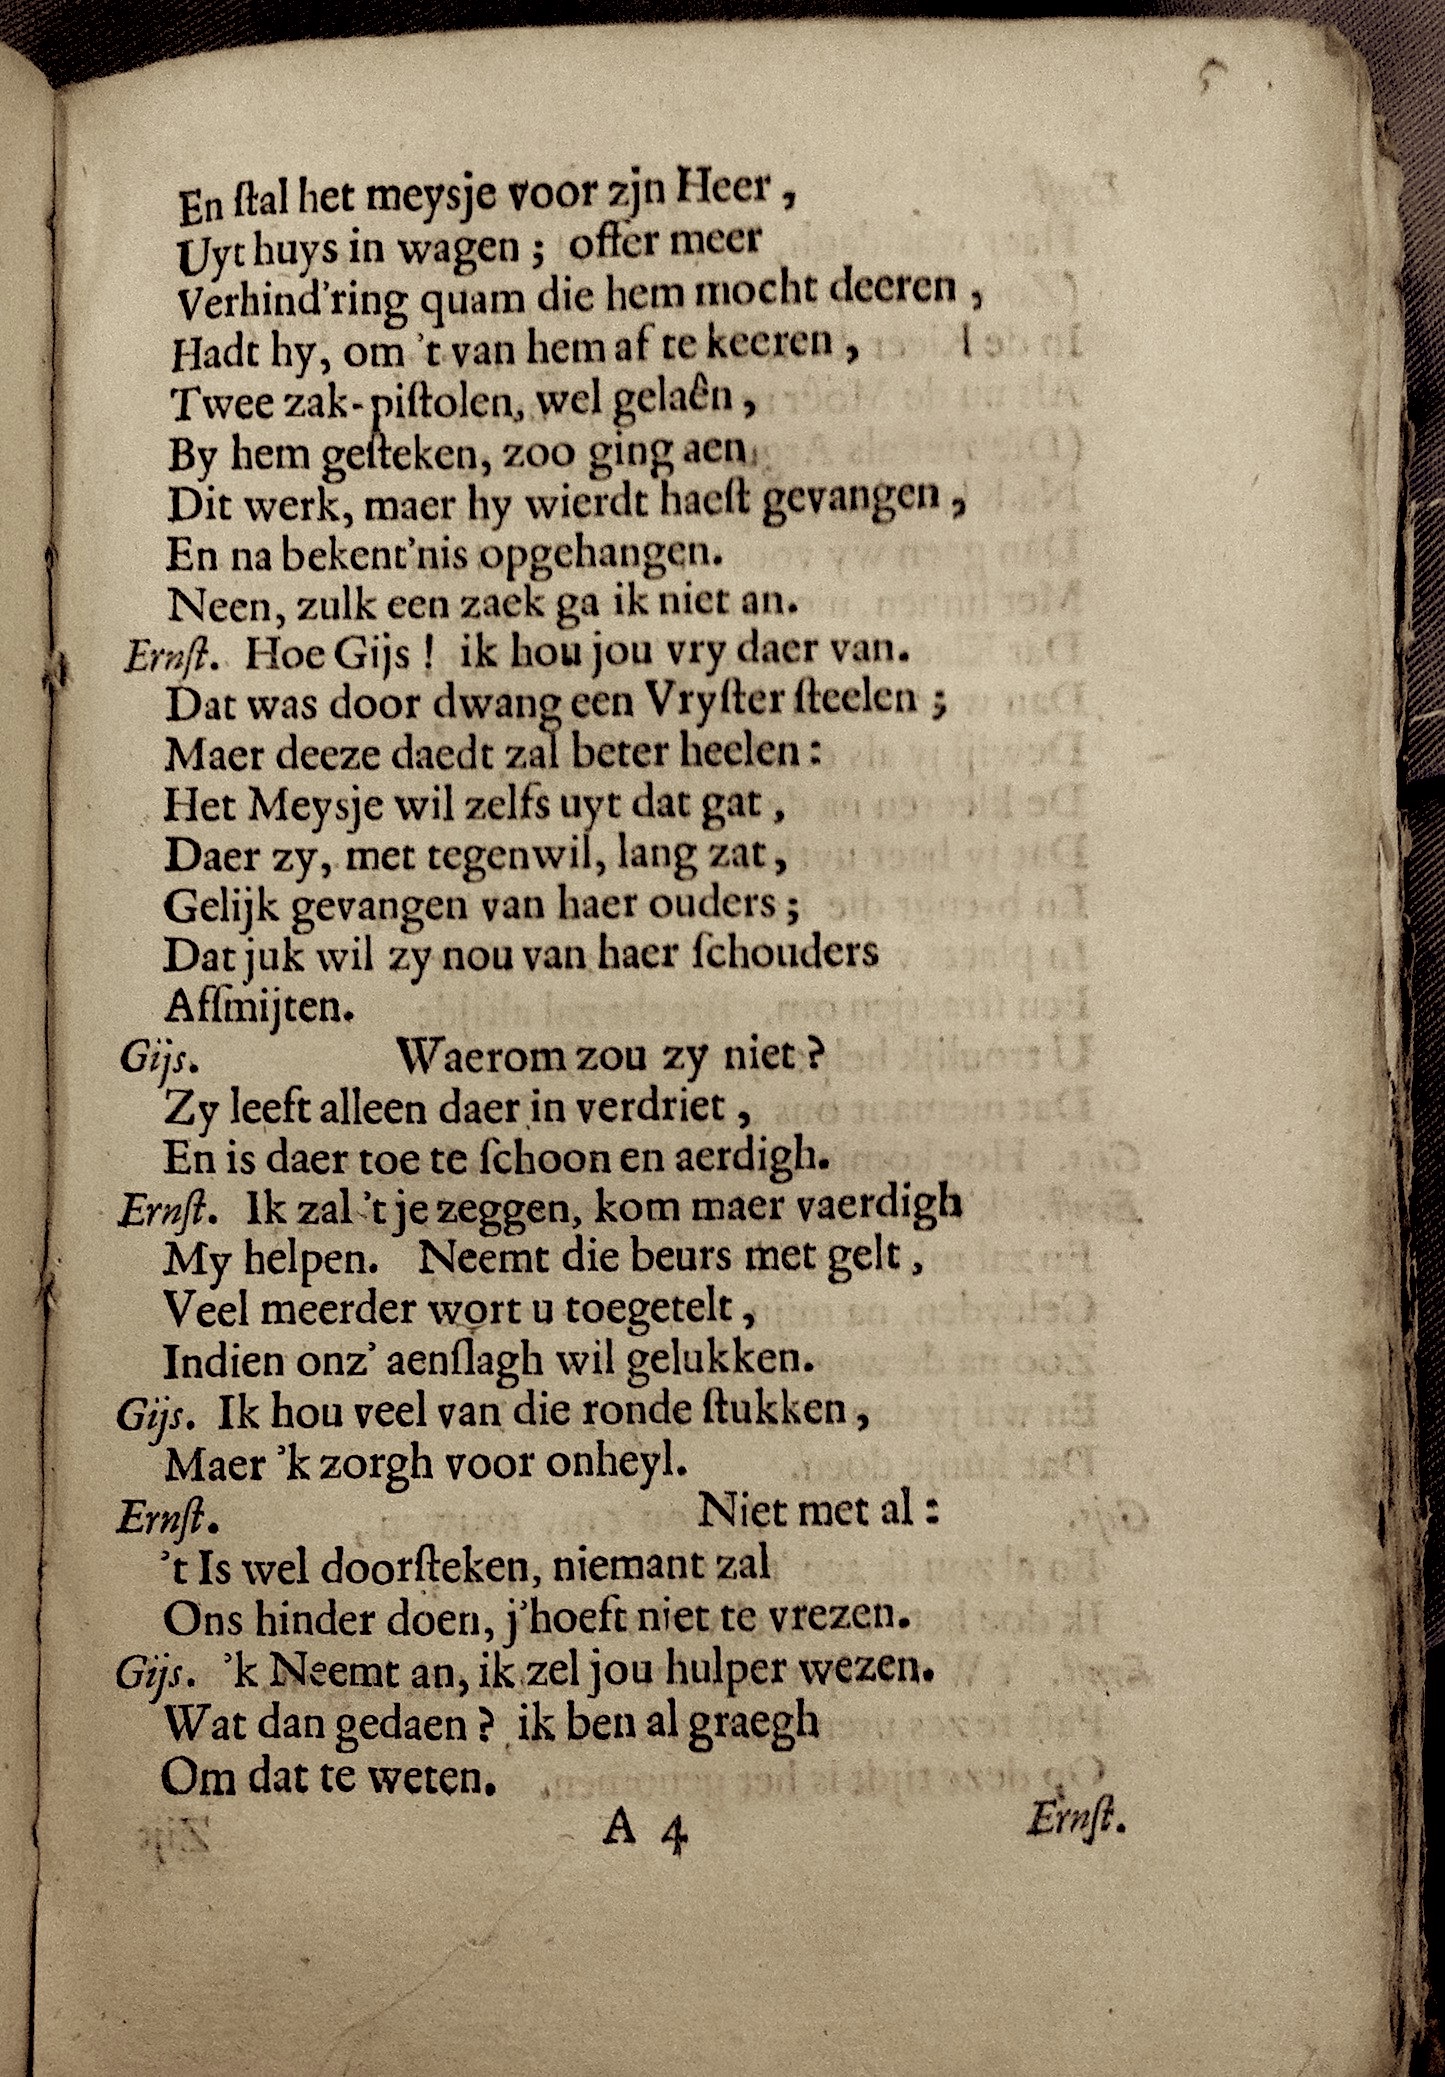 5
En ſtal het meysje voor zjn Heer,
Uyt huys in wagen; offer meer
Verhind'ring quam die hem mocht deeren,
Hadt hy, om 't van hem af te keeren,
Twee zak-piſtolen, wel gelaên,
By hem geſteken, zoo ging aen
Dit werk, maer hy wierdt haeſt gevangen,
En na bekent'nis opgehangen.
Neen, zulk een zaek ga ik niet an.
Ernſt. Hoe Gijs! ik hou jou vry daer van.
Dat was door dwang een Vryſter ſteelen;
Maer deeze daedt zal beter heelen:
Het Meysje wil zelfs uyt dat gat,
Daer zy, met tegenwil, lang zat,
Gelijk gevangen van haer ouders;
Dat juk wil zy nou van haer ſchouders
Afſmijten.
Gijs. Waerom zou zy niet?
Zy leeft alleen daer in verdriet,
En is daer toe te ſchoon en aerdigh.
Ernſt. Ik zal 't je zeggen, kom maer vaerdigh
My helpen. Neemt die beurs met gelt,
Veel meerder wort u toegetelt,
Indien onz' aenſlagh wil gelukken.
Gijs. Ik hou veel van die ronde ſtukken,
Maer 'k zorgh voor onheyl.
Ernſt. Niet met al:
't Is wel doorſteken, niemant zal
Ons hinder doen, j'hoeft niet te vrezen.
Gijs. 'k Neemt an, ik zel jou hulper wezen.
Wat dan gedaen? ik ben al graegh
Om dat te weten.
A 4 Ernſt.